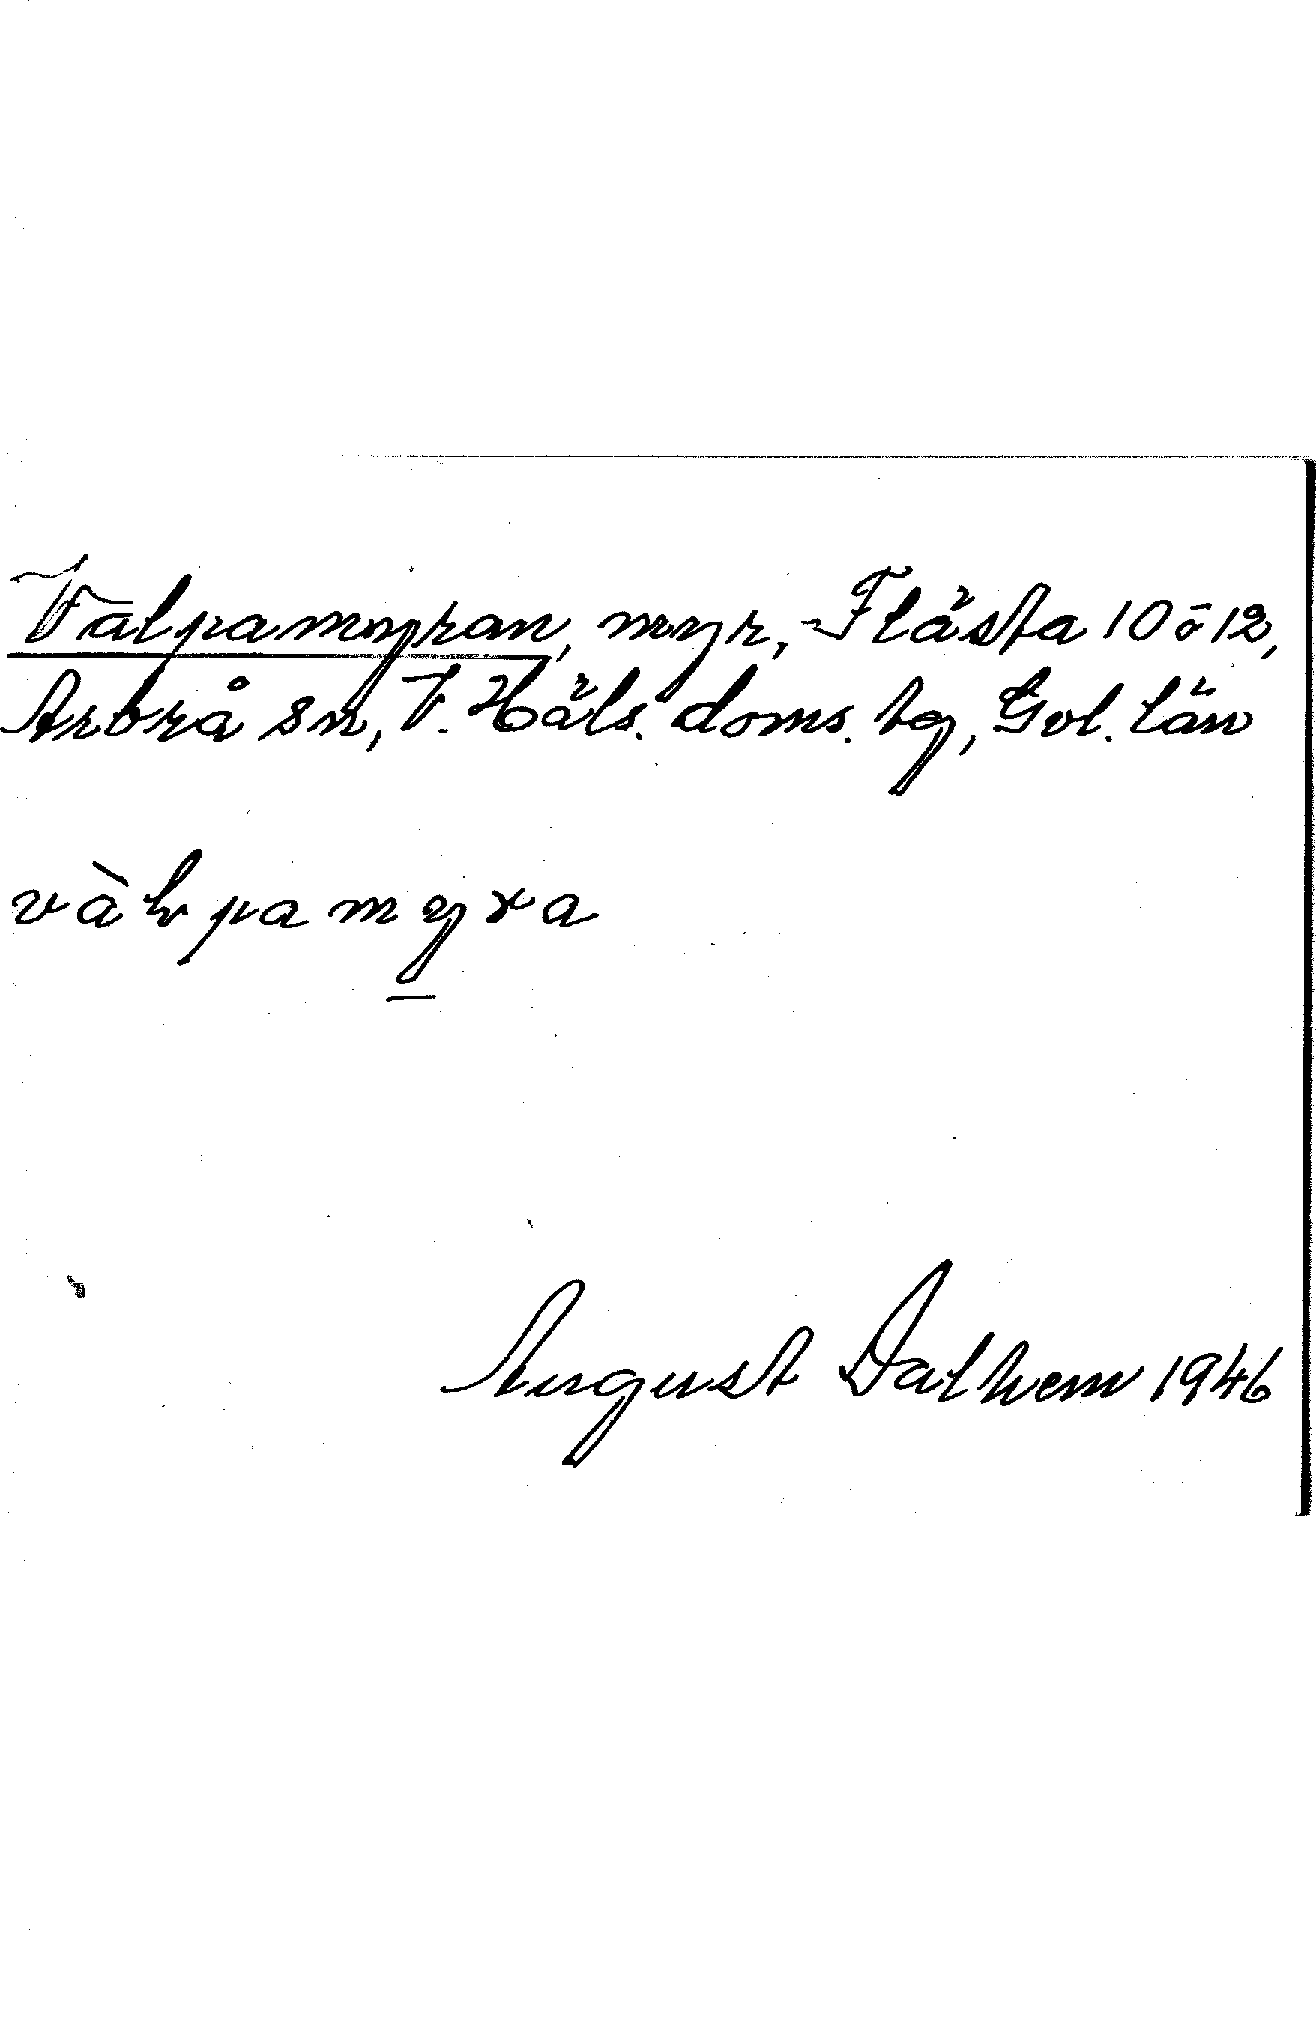 Valpamyran, myr, Flästa 10 o 12,
Arbrå sn, V. Häls. doms. tg, Gvl. län
vàlvpamyra
August Dalhem 1946